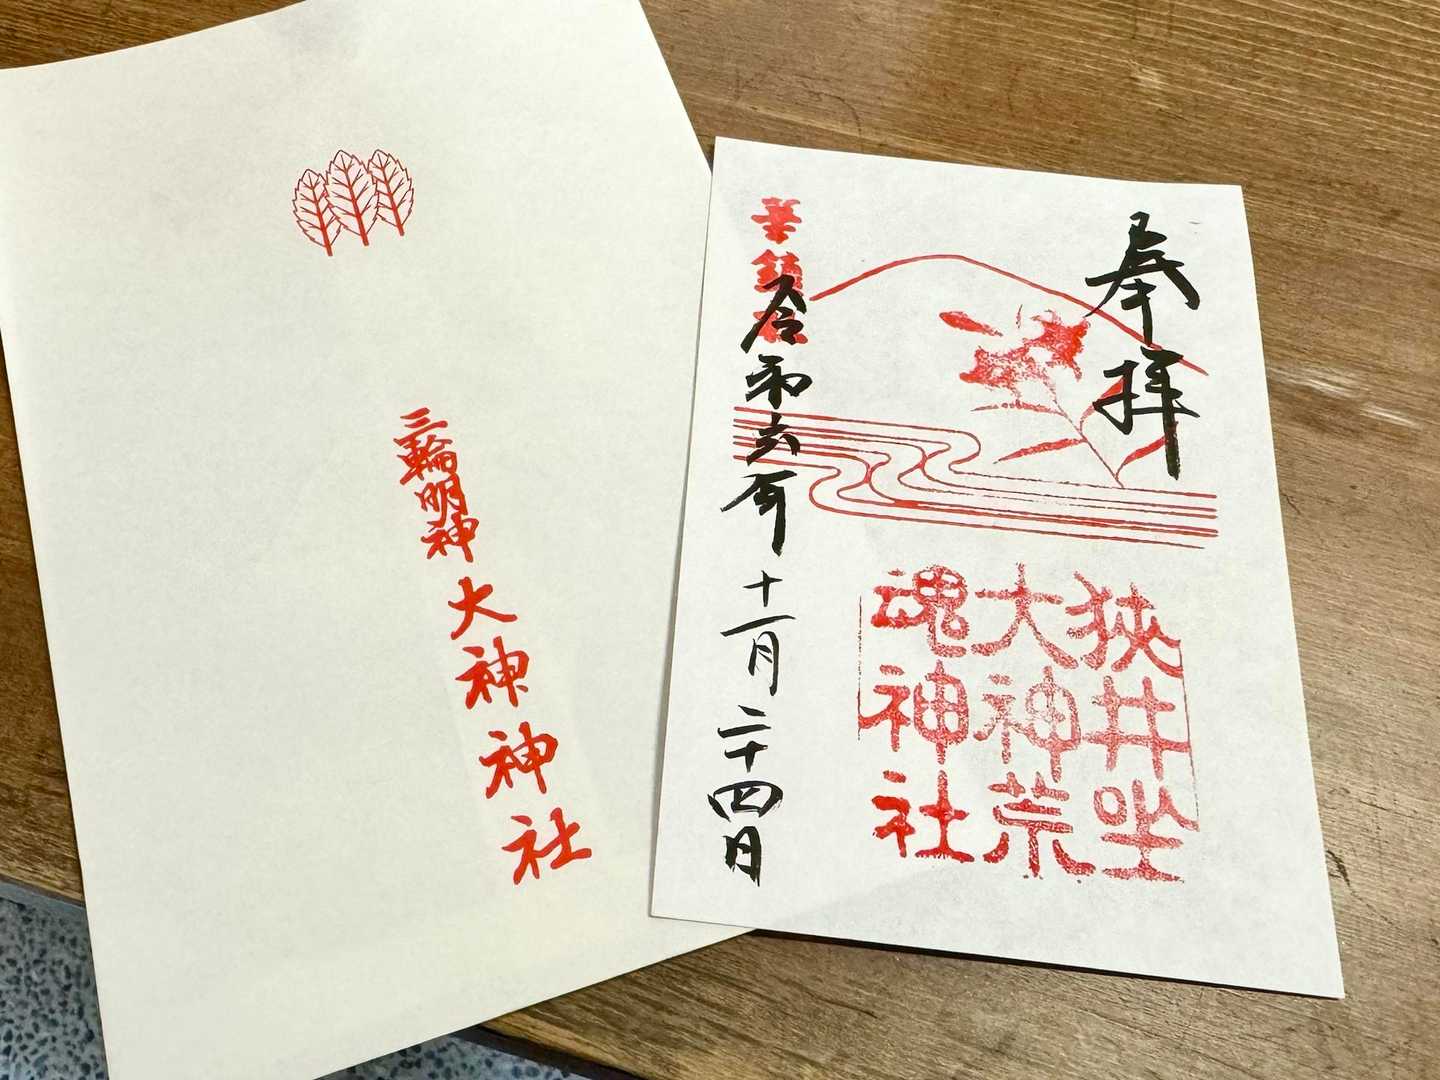 三輪明神
大神神社
奉拝
華鎮社
令和六年十一月二十四日
狭井坐
大神荒
魂神社